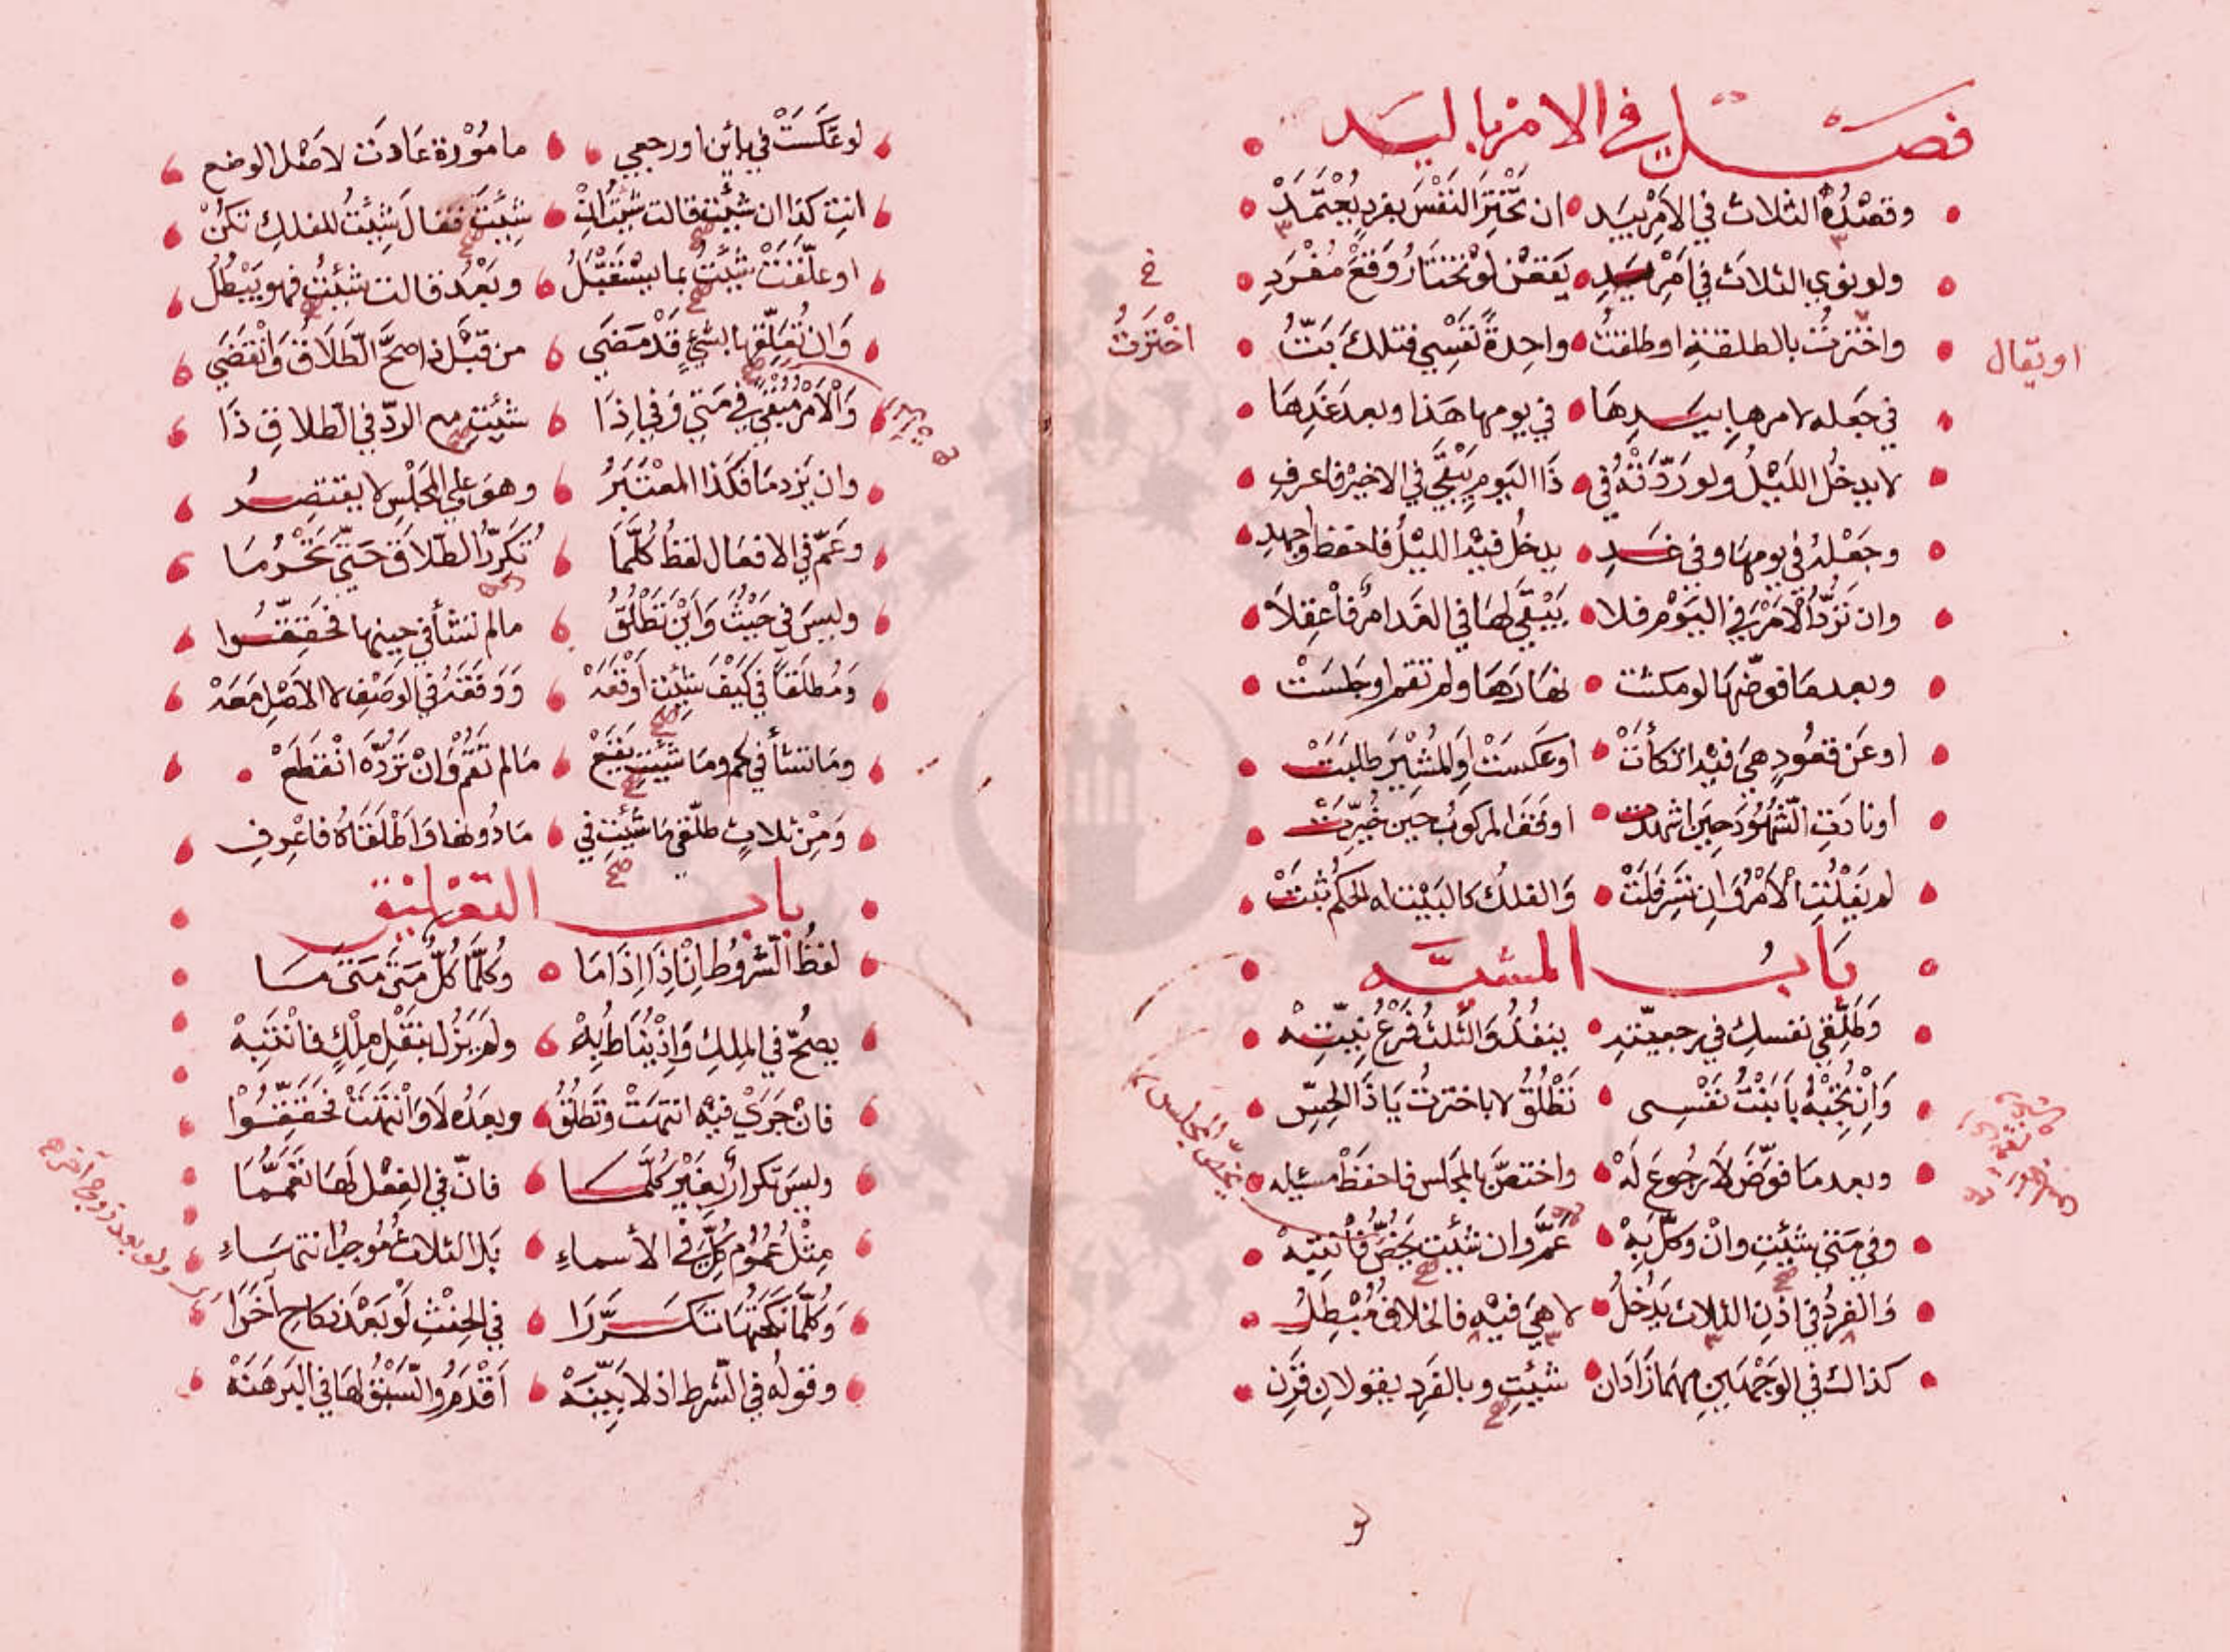 فصل في الامر باليد
وقصده الثلاث في الامر بيد ان تختر النفس بفرد يعتمد
ولو نوي الثلاث في امر يد يقعن لو تختار وقع مفرد
واخترت بالطلقة او طلقت واحدة نفسي فتلك بتت
او يقال
خ
اخترت
في جعله لامرها بيدها في يومها هذا وبعد غدها
لا يدخل الليل ولو ردته في ذا اليوم يبقي في الاخير فاعرف
وجعله في يومها وفي غد يدخل فيه الليل فاحفظ واجهد
وان ترد الامر في اليوم فلا يبقي لها في الغد امر فاعقلا
وبعدما فوضها لو مكثت نهارها ولم تقم او جلست
او عن قعود هي فيه اتكأت او عكست او لمشير طلبت
او نادت الشهود حين اشهدت او وقف المركوب حين خيرت
لم يفلت الامر وان تسر فلت والفلك كالبيت له الحكم ثبت
باب المشية
وطلقي نفسك في رجعيته ينفذ والثلث فرع نيته
وان تجبه بابنت نفسي تطلق لا باخترت يا ذا الحس
وبعدما فوض لا رجوع له واختص بالمجلس فاحفظ مسئله
يخص المجلس
وفي متي شئت وان وكل به عم وان شئت يخص فانتبه
والفرد في اذن الثلاث يدخل لا هي فيه فالخلاف مبطل
كذاك في الوجهين مهما زادان شئت وبالفرد يقولان قرن
لو
لو عكست في بائن او رجعي ما مورة عادت لاصل الوضع
انت كذا ان شئت قالت شئت ان شئت فقال شئت للفلك تكن
او علقت شئت بما يستقبل وبعد قالت شئت فهو يبطل
وان تعلقها بشئ قد مضي من قبل ذا صح الطلاق وانقضي
والامر مبقي في متي وفي اذا شئت مع الرد في الطلاق ذا
وان يزد ما فكذا المعتبر وهو علي المجلس لا يقتصر
وعم في الافعال لفظ كلما تكرر الطلاق حتي تحرما
وليس في حيث واين تطلق مالم تشأ في حينها فحققوا
ومطلقا في كيف شئت اوقعه ووقفه في الوصف لا الاصل معه
وما تشأ في كم وما شئت يقع مالم تقم وان ترده انقطع
ومن ثلاث طلقي ما شئت في ما دونها واطلقاه فاعرف
باب التعليق
لفظ الشروط ان اذا اذا ما وكلما كل متي متي ما
يصح في الملك واذ يناط به ولم يزل بنقل ملك فانتبه
فان جري فيه انتهت وتطلق وبعده لا وانتهت فحققوا
وليس تكرار بغير كلما فان في الفعل لها تعمما
مثل عموم كل في الأسماء بلا الثلاث موجب انتهاء
ولو بعد زوج آخره
وكلما نكحتها تكررا في الحنث لو بعد نكاح آخرا
وقوله في الشرط اذ لا بينه اقدم والسبق لها في البرهنه